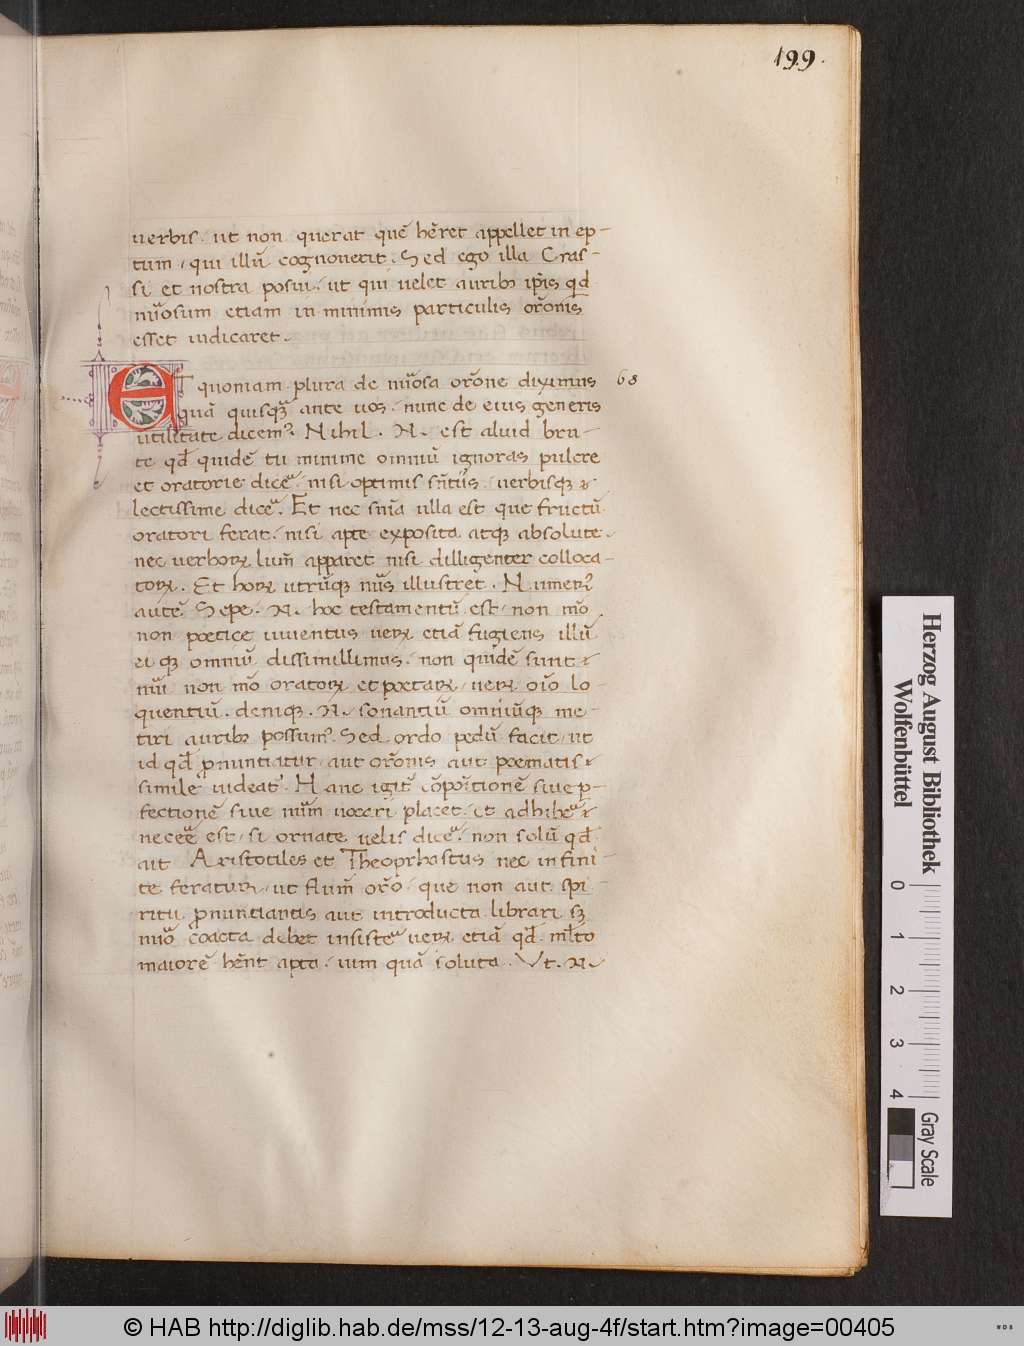 199.
uerbis. ut non querat quē hēret appellet in ep-
tum, qui illū cognouerit. Sed ego illa Cras-
si et nostra posui. ut qui uelet auribꝫ ip̄is qd̄
nūosum etiam in minimis particulis or̄onis
esset iudicaret.
ET quoniam plura de nūosa or̄one diximus 68
quā quisqꝫ ante uos. nunc de eius generis
utilitate dicemꝰ. Nihil. N. est aluid bru-
te qd̄ quidē tu minime omniū ignoras pulcre
et oratorie dicē. nisi optimis sn̄tiis. uerbisqꝫ
lectissime dicē. Et nec sn̄ia ulla est que fructū
oratori ferat. nisi apte exposita atqꝫ absolute.
nec uerboꝝ lum̄ apparet nisi dilligenter colloca-
toꝝ. Et hoꝝ utrūqꝫ nūs illustret. Numerꝰ
autē Sepe. N. hoc testamentū est, non mō
non poetice iuuentus ueꝝ etiā fugiens illū
ei qꝫ omniū dissimillimus. non quidē sunt
nūi non mō oratoꝝ et poetaꝝ, ueꝝ oīo lo-
quentiū. deniqꝫ. N. sonantiū omniūqꝫ me-
tiri auribꝫ possumꝰ. Sed ordo pedū facit, ut
id qd̄ ꝓnuntiatur, aut or̄onis aut poematis
simile uideatꝰ. Hanc igit̄ cōpōitionē siue ꝑ-
fectionē siue nūm uocari placet. et adhibē
necēe est, si ornate uelis dicē. non solū qd̄
ait Aristotiles et Theoprhastus nec infini-
te feratur, ut flum̄ or̄o. que non aut spi
ritu ꝓnuntiantis aut introducta librari sꝫ
nūo coacta debet insistē ueꝝ etiā qd̄ ml̄to
maiorē hēnt apta. uim quā soluta. Vt. N.
Herzog August Bibliothek
Wolfenbüttel
0 1 2 3 4
Gray Scale
© HAB http://diglib.hab.de/mss/12-13-aug-4f/start.htm?image=00405